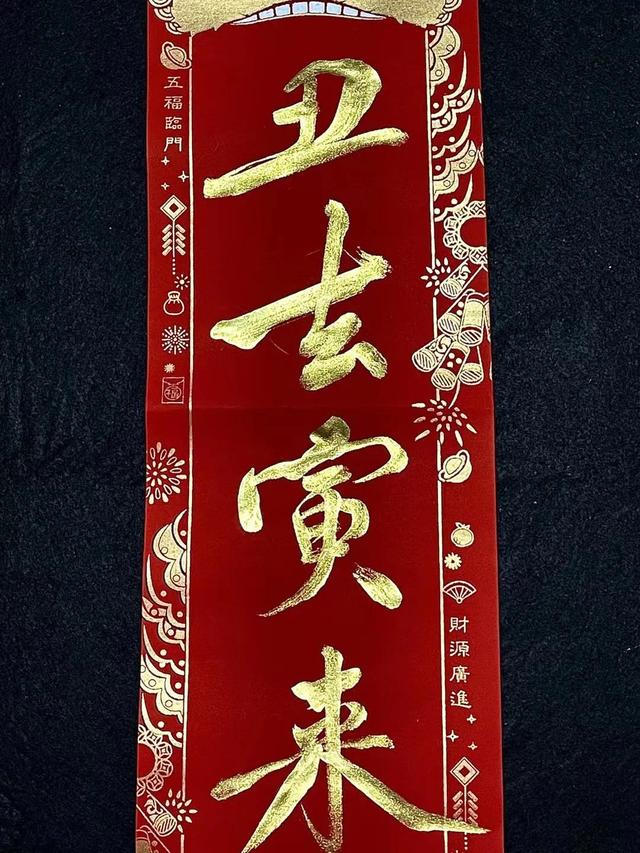 五福臨門
丑去寅來
財源廣進